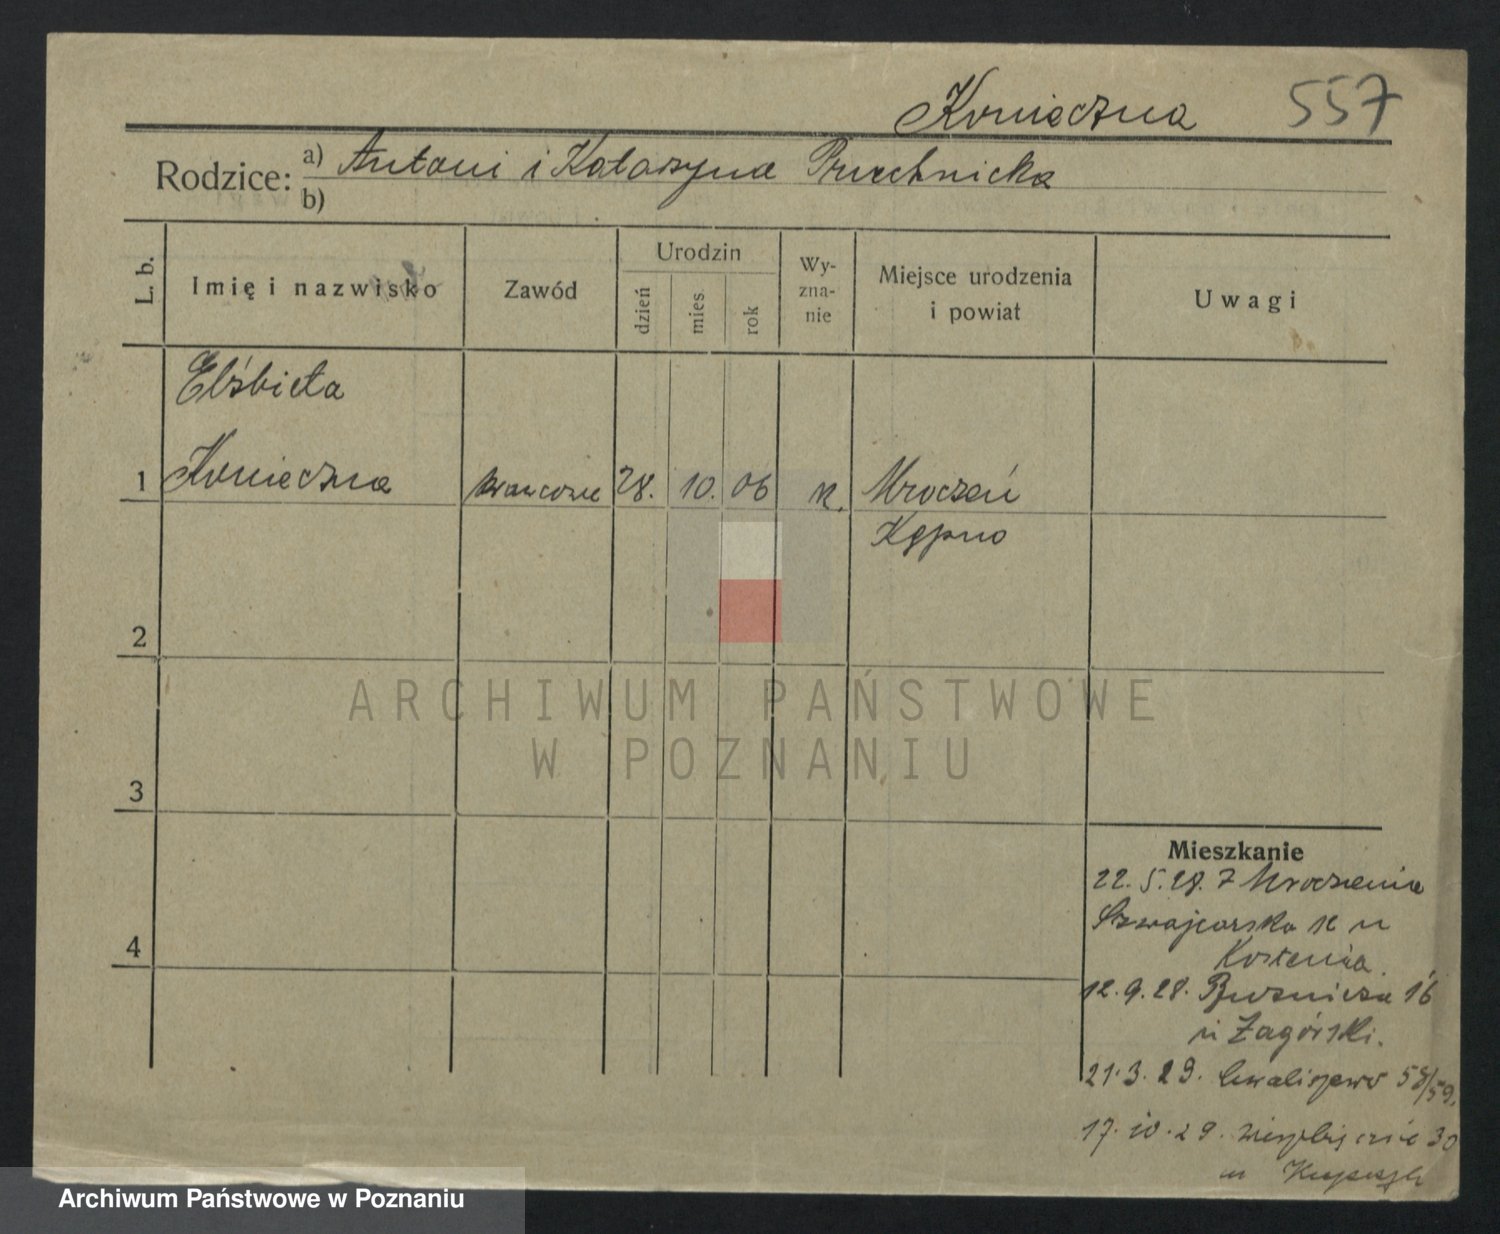 Konieczna 557
Rodzice: a) Antoni i Katarzyna
b)
L. b. Imię i nazwisko Zawód Urodzin dzień mies rok Wy-zna-nie Miejsce urodzenia i powiat Uwagi
Elżbieta
1 Konieczna krawcowa 28. 10. 06 k. Mroczeń
Kępno
2
ARCHIWUM PAŃSTWOWE
W POZNANIU
3
Mieszkanie
22. 5. 28. z Mroczenia
4 Szwajcarska 12 u
12. 9. 28. 16
u Zagórski.
21. 3. 29. Chwaliszewo 58/59.
17. 10. 29. 30
u
Archiwum Państwowe w Poznaniu